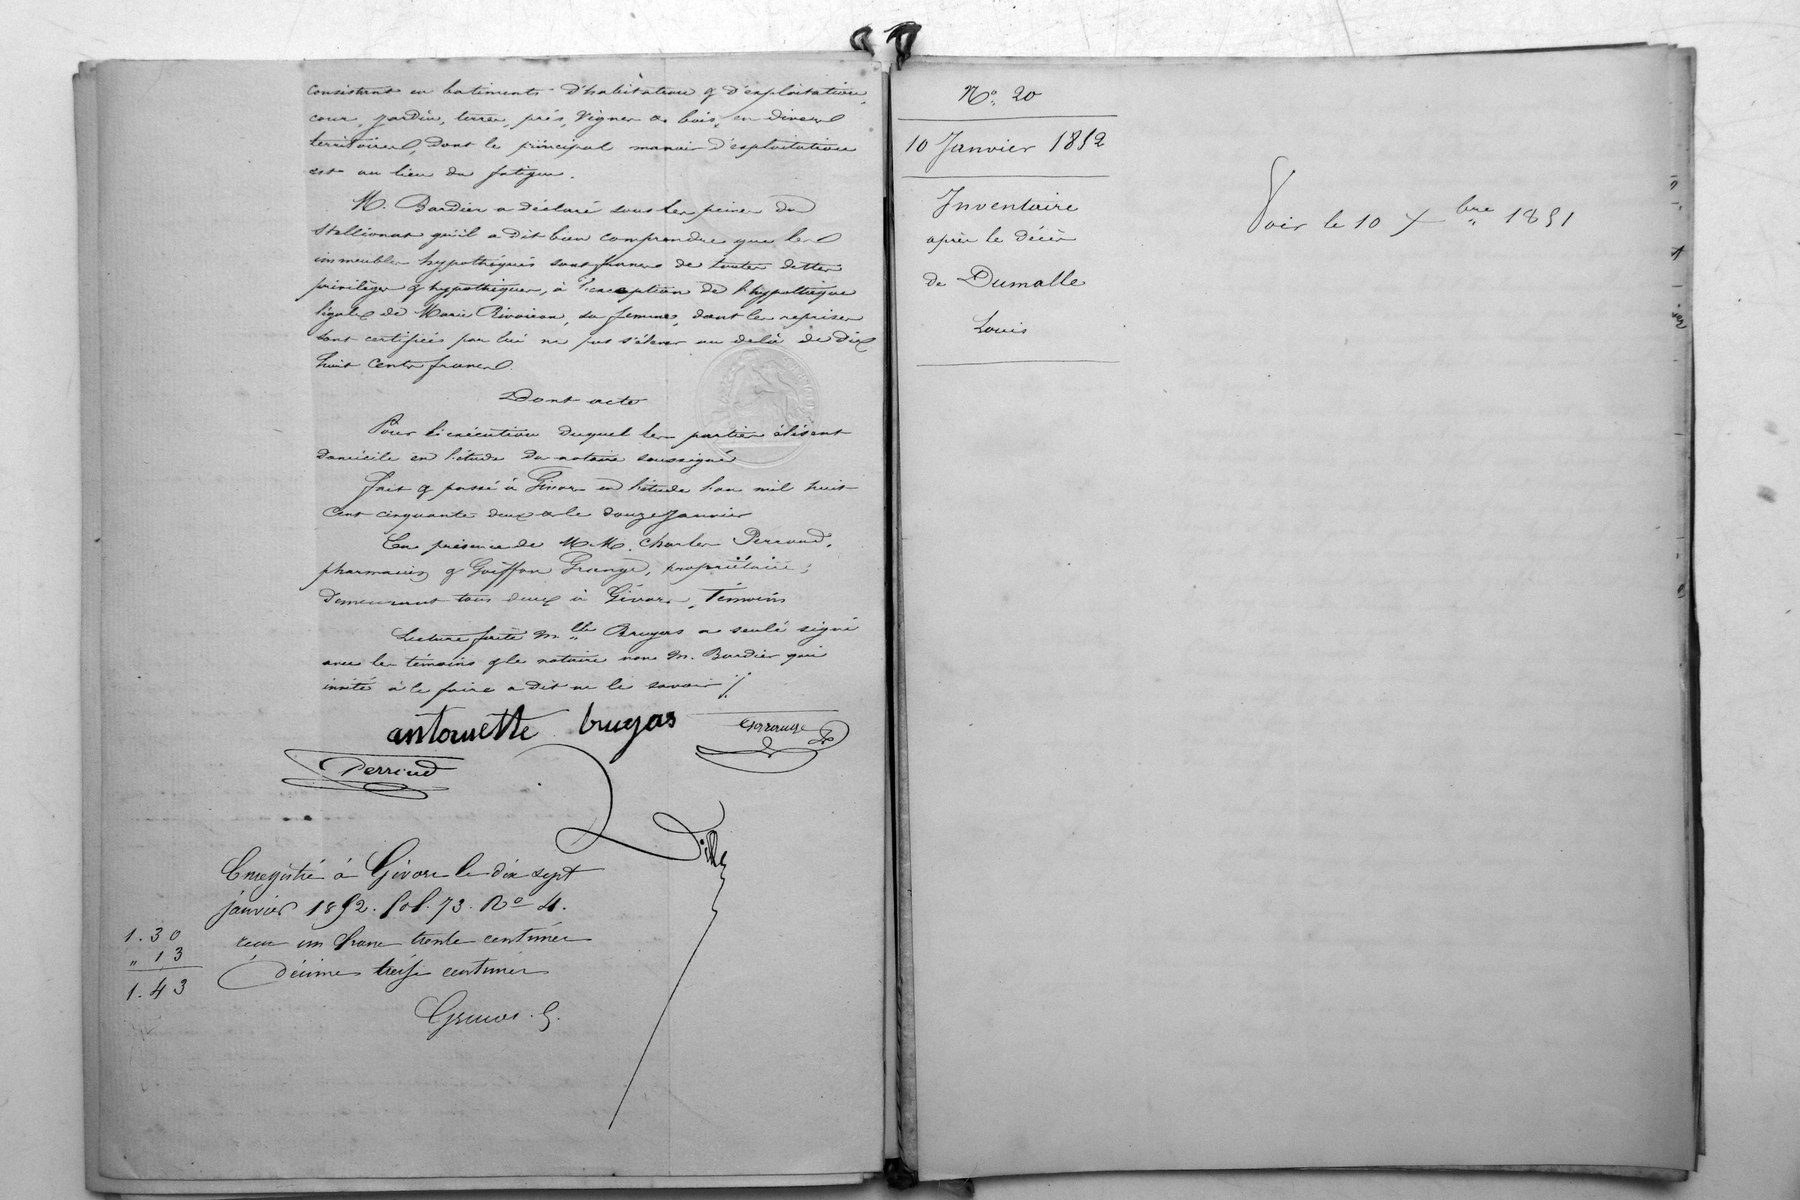 consistant en batiments d'habitation & d'exploitation,
cour, jardin, terres, prés, vignes & bois, en divers
territoires, dont le principal manoir d'exploitation
est au lieu du fatigue.
M. Bardier a déclaré sous les peines du
stellionat qu'il a dit bien comprendre que les
immeubles hypothéqués sont francs de toutes dettes
privilèges & hypothèques, à l'exception de l'hypothèque
légale de Marie sa femme, dont les reprises
sont certifiées par lui ne pas s'élever au delà de dix
huit cents francs
Dont acte
Pour l'exécution duquel les parties élisent
domicile en l'étude du notaire soussigné
Fait & passé à Givors en l'étude l'an mil huit
cent cinquante deux & le douze Janvier
En présence de M.M. Charles Perraud,
pharmacien & Goiffon propriétaire,
demeurant tous deux à Givors, Témoins
Lecture faite Mlle Brugas a seule signé
avec les témoins & le notaire non M. Bardier qui
invité à le faire a dit ne le savoir ./.
antoinette brugas
Perraud
Enregistré à Givors le dix sept
janvier 1852. fol. 73. No 4.
1.30 reçu un franc trente centimes
" 13 décime treize centimes
1.43
No. 20
10 Janvier 1852
Inventaire
après le décès
de Dumalle
Louis
Voir le 10 Xbre 1851